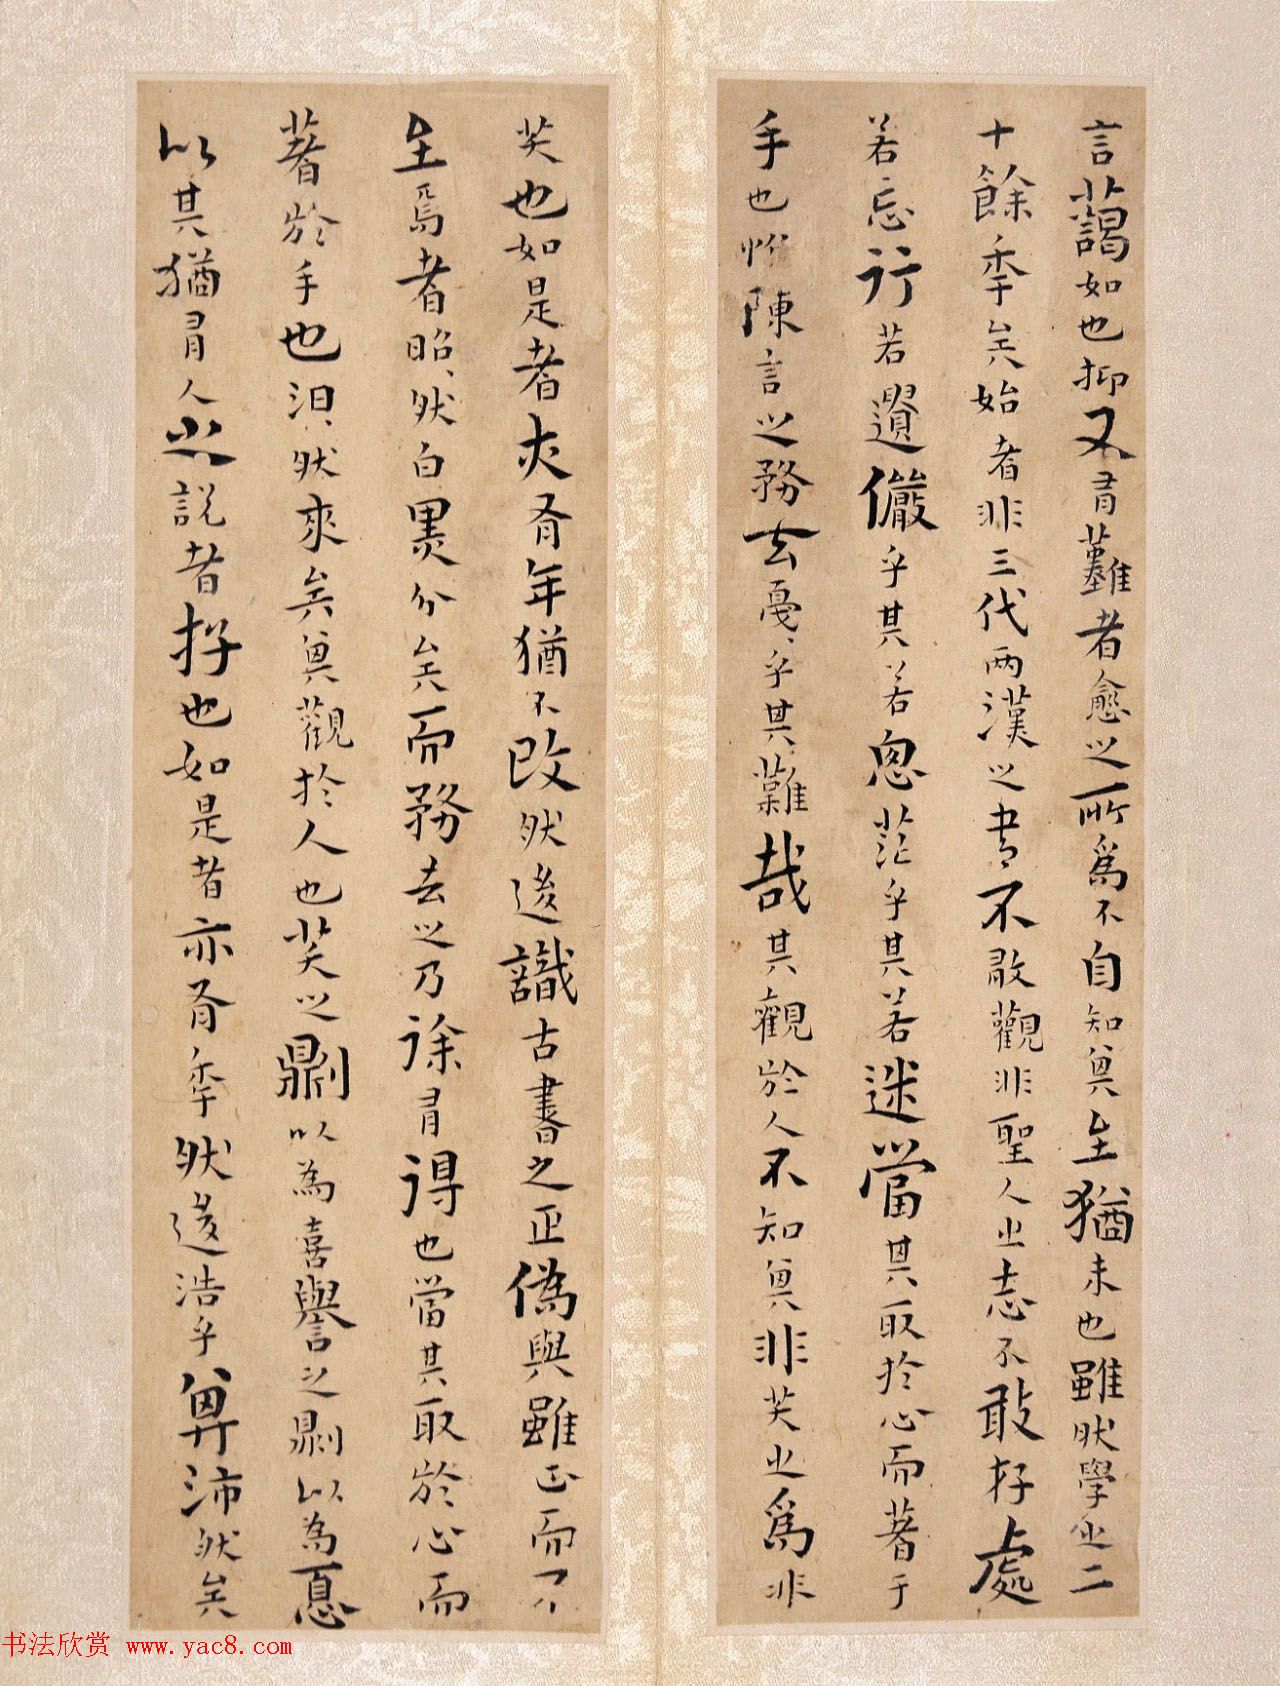 言藹如也抑又有難者愈之所爲不自知其至猶未也雖然學之二
十餘年矣始者非三代兩漢之書不敢觀非聖人之志不敢存處
若忘行若遺儼乎其若思茫乎其若迷當其取於心而著于
手也惟陳言之務去戛、乎其難哉其觀於人不知其非笑之爲非
笑也如是者亦有年猶不改然後識古書之正偽與雖正而不
至焉者昭、然白黑分矣而務去之乃徐有得也當其取於心而
著於手也汩、然來矣其觀於人也笑之則以為喜譽之則以為憂
以其猶有人之説者存也如是者亦有年然後浩乎其沛然矣
书法欣赏 www.yac8.com